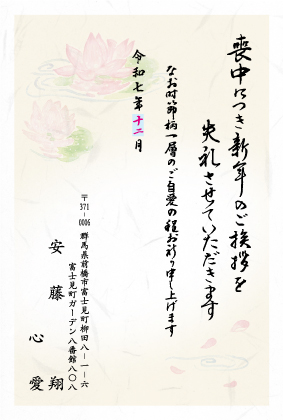 喪中につき新年のご挨拶を
失礼させていただきます
なお時節柄一層のご自愛の程お祈り申し上げます
令和七年十二月
〒371-0006
群馬県前橋市富士見町柳田八-一-六
富士見町ガーデン八番館八〇八
安藤 翔
心愛